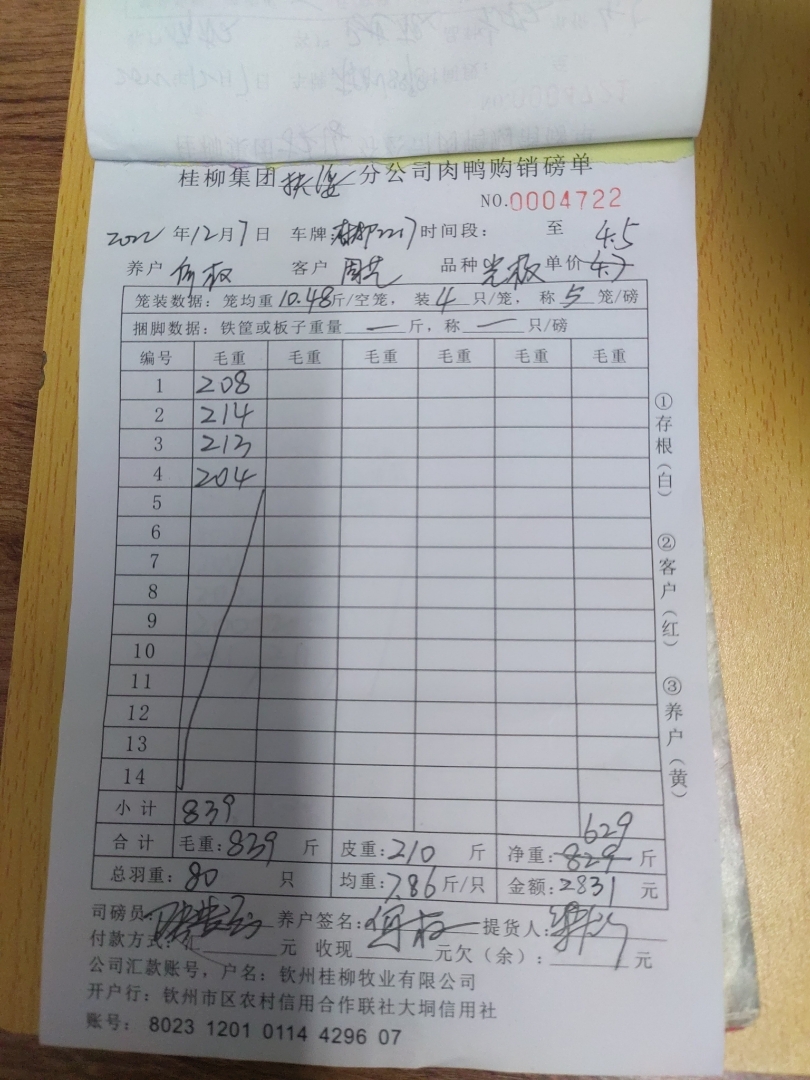 桂柳集团 分公司肉鸭购销磅单
NO.0004722
2022 年 12 月 7 日 车牌: 2217 时间段: 至
4.5
养户 何权 客户 周艺 品种 光板 单价 4.7
笼装数据: 笼均重 10.48 斤/空笼, 装 4 只/笼, 称 5 笼/磅
捆脚数据: 铁筐或板子重量 — 斤, 称 — 只/磅
编号 毛重 毛重 毛重 毛重 毛重 毛重
1 208
2 214
3 213
4 204
5
6
7
8
9
10
11
12
13
14
小计 839
629
合计 毛重: 839 斤 皮重: 210 斤 净重: 829 斤
总羽重: 80 只 均重: 7.86 斤/只 金额: 2831 元
司磅员: 养户签名: 何权 提货人:
付款方式: 汇 元 收现 元欠(余): 元
公司汇款账号, 户名: 钦州桂柳牧业有限公司
开户行: 钦州市区农村信用合作联社大垌信用社
账号: 8023 1201 0114 4296 07
①存根(白)
②客户(红)
③养户(黄)